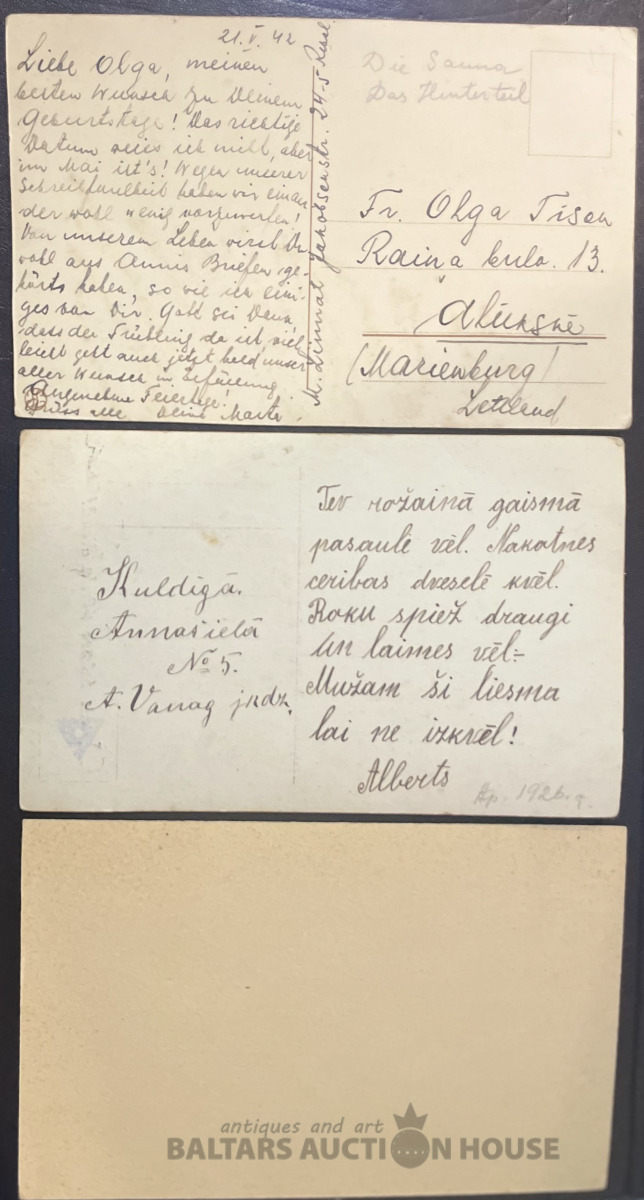 21. V. 42
Liebe Olga, meinen
besten Wunsch zu Deinem
Geburtstage! Das richtige
Datum weiss ich nicht, aber
im Mai ist's! Wegen unserer
Schreibfaulheit haben wir einan-
der wohl wenig vorzuwerfen!
Von unserem Leben wirst Du
wohl aus Annis Briefen ge-
hört haben, so wie ich eini-
ges von Dir. Gott sei Dank,
dass der Frühling da ist, viel-
leicht geht auch jetzt bald unser
aller Wunsch in Erfüllung.
Angenehme Feiertage!
Grüss alle Deine Marta.
M. Jakobsonstr. 24-5 Reval
Die Sauna
Das Hinterteil
Fr. Olga Tisen
Raiņa bulv. 13.
Alūksnē
(Marienburg)
Lettland
Kuldīgā.
Annas ielā
No 5.
A. Vanag jkdz.
Tev rožainā gaismā
pasaulē vēl. Nākotnes
cerības dvēselē kvēl.
Roku spiež draugi
Un laimes vēl=
Mūžam šī liesma
lai ne izkvēl!
Alberts
Ap. 1926. g.
antiques and art
BALTARS AUCTION HOUSE